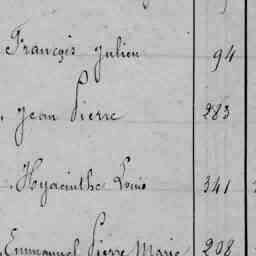 François Julien 94
Jean Pierre 283
Hyacinthe Louis 341
Emmanuel Pierre Marie 208